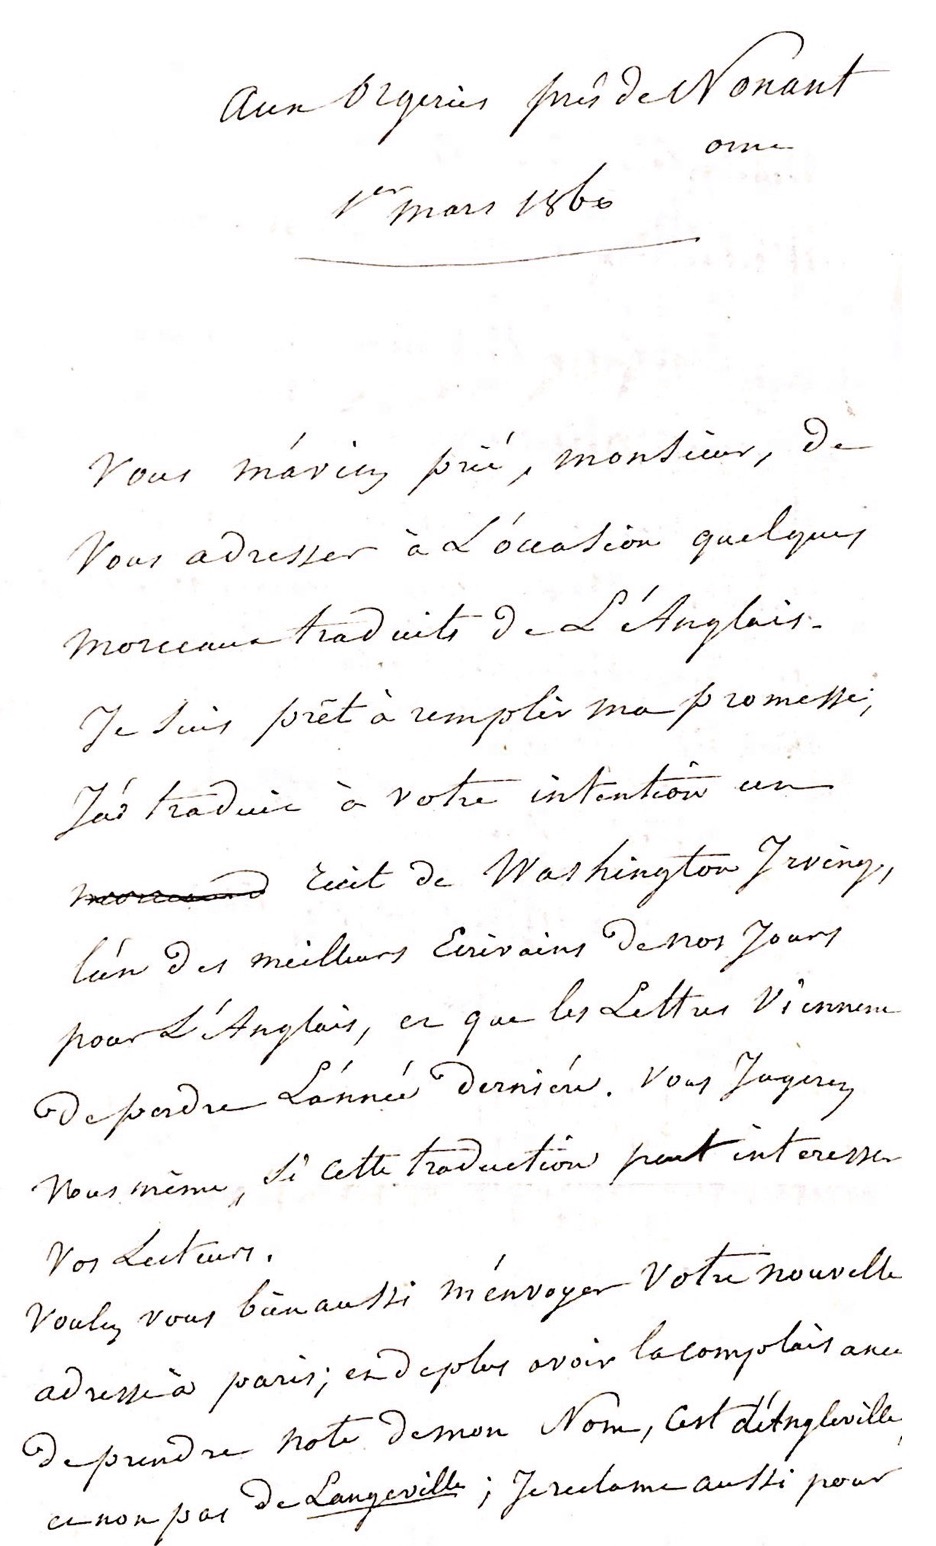 Aux Orgeries près de Nonant
orne
1er mars 1860
Vous m'aviez prié, monsieur, de
Vous adresser à L'occasion quelques
morceaux traduits de L'Anglais.
Je suis prêt à remplir ma promesse;
J'ai traduit à votre intention un
morceau récit de Washington Irving,
l'un des meilleurs Ecrivains de nos Jours
pour L'Anglais, et que les Lettres Viennent
de perdre L'année derniére. Vous Jugerez
Vous même, si cette traduction peut interesser
Vos Lecteurs.
Voulez vous bien aussi m'envoyer Votre nouvelle
adresse à paris; et de plus avoir la complaisance
de prendre note de mon Nom, c'est d'Angleville,
et non pas de Langeville; Je reclame aussi pour